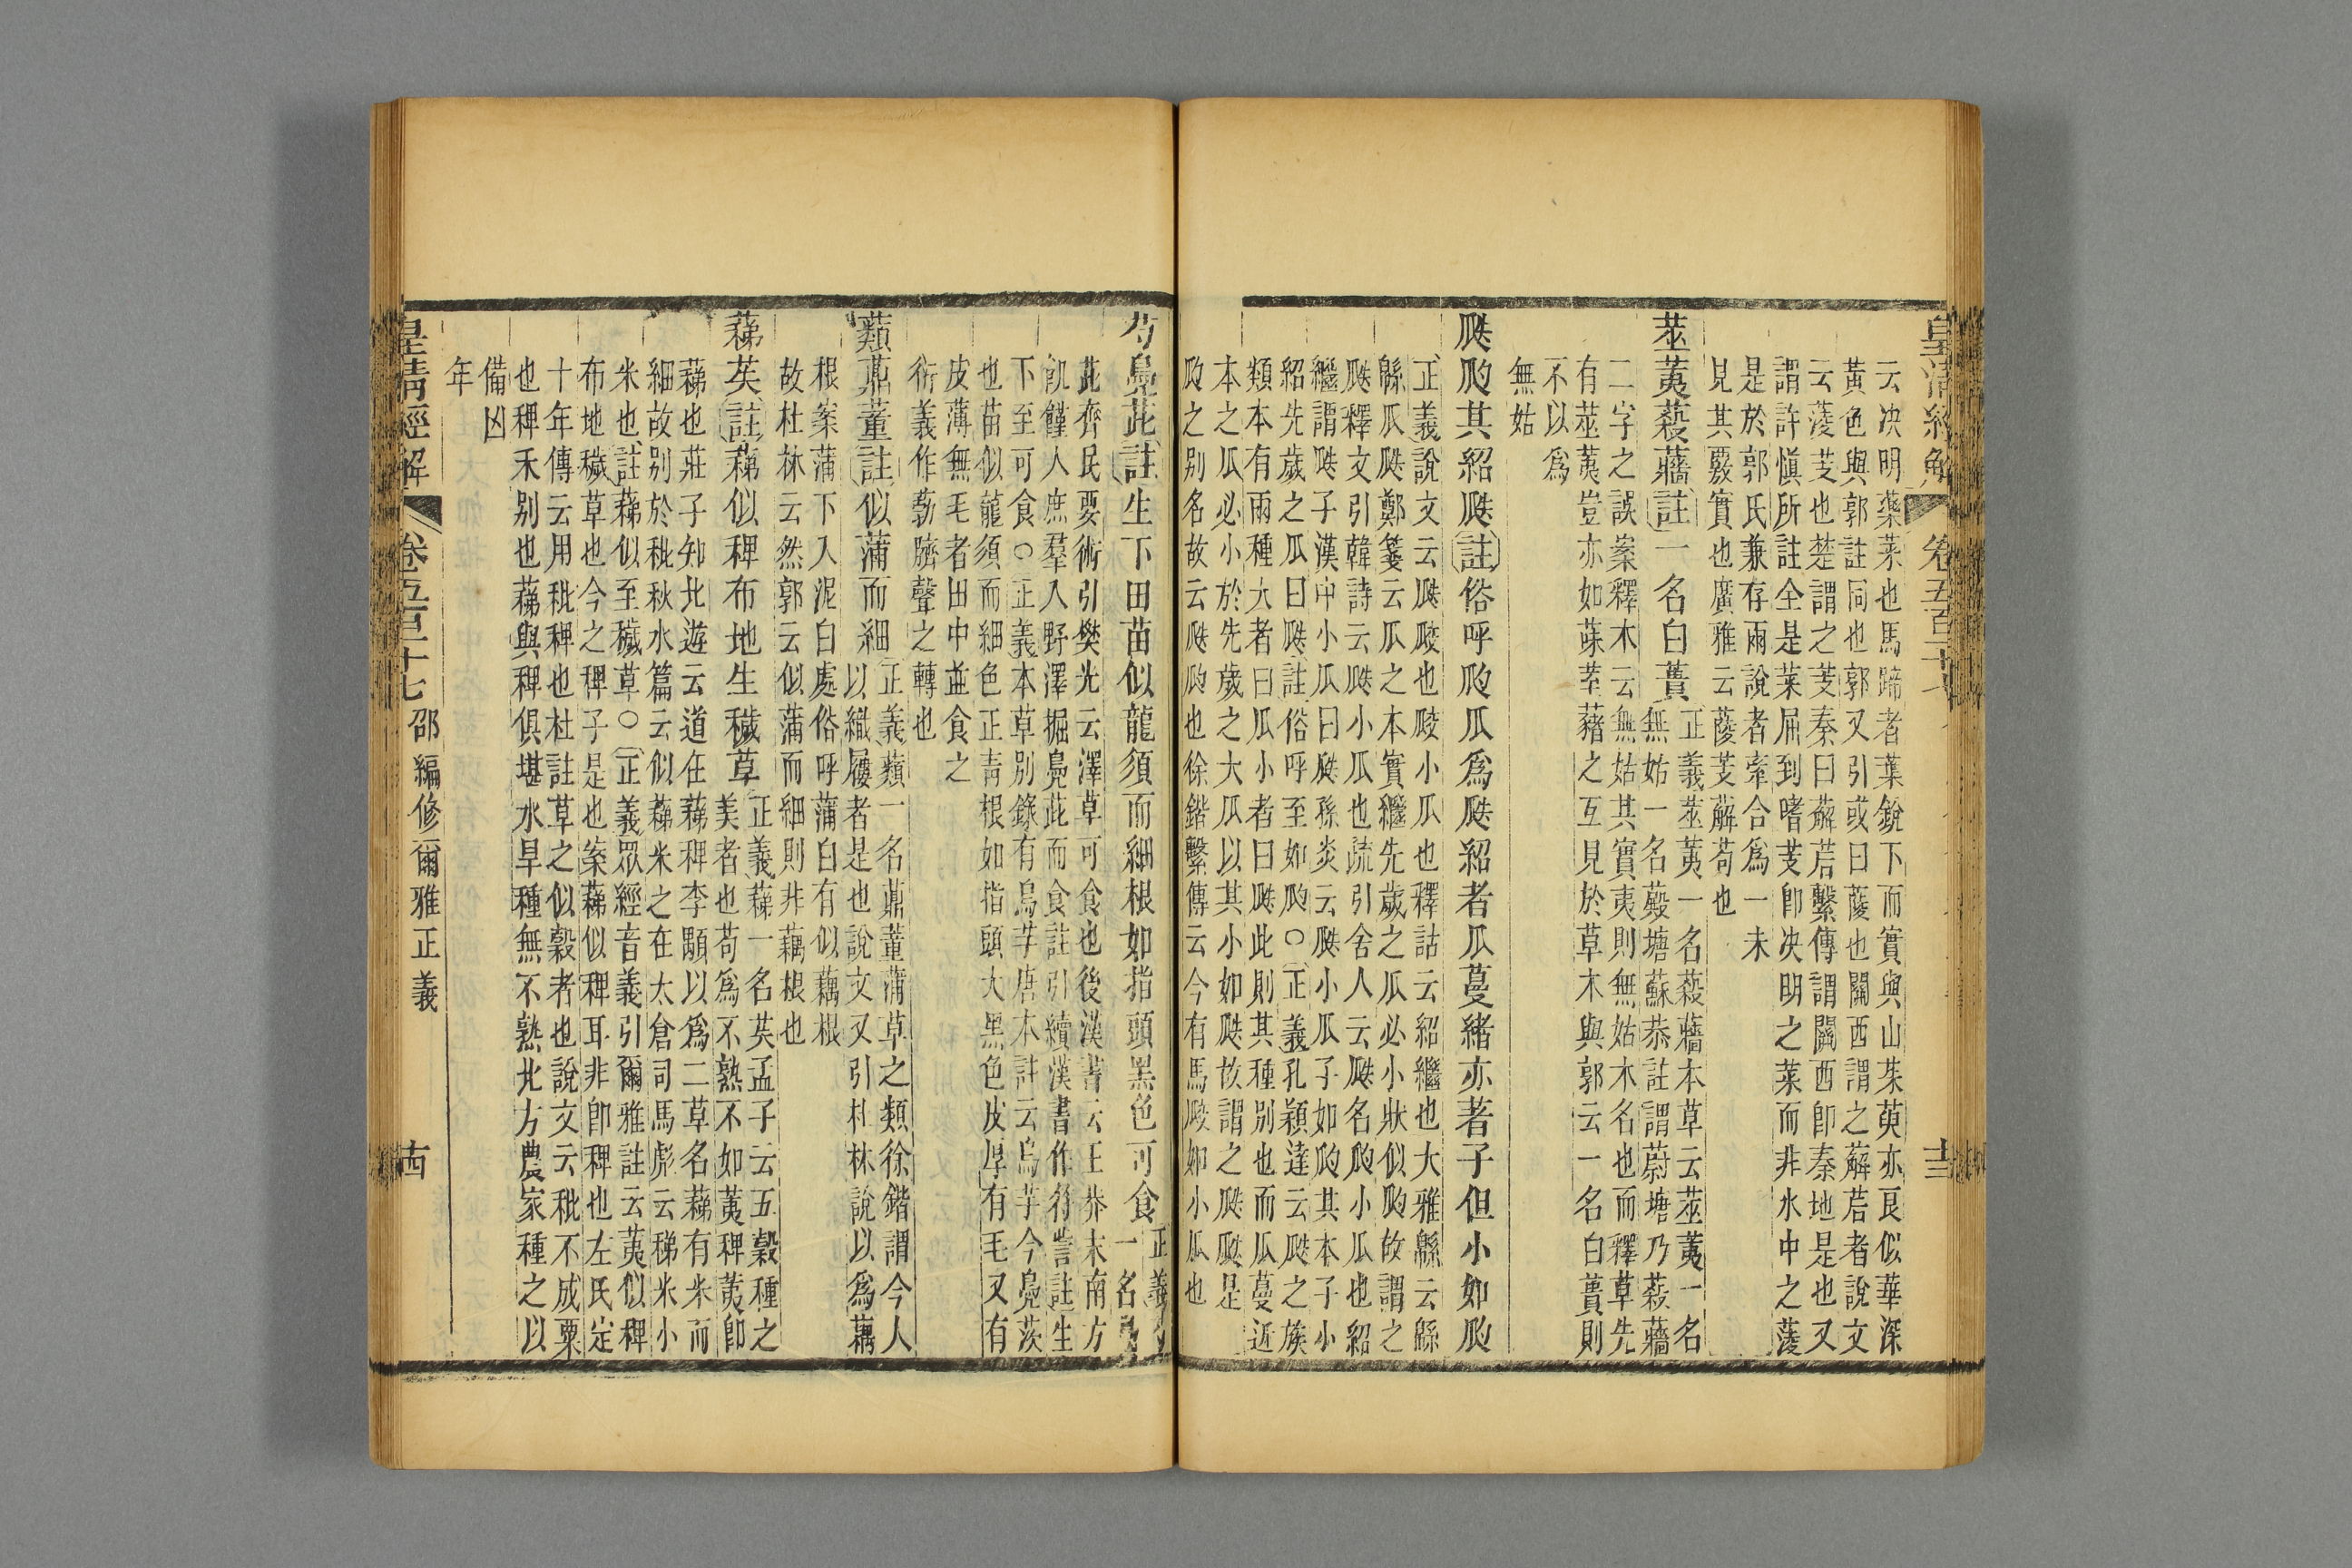 皇清經解 卷五百二十七 十三
云決明藥菜也馬蹄者葉銳下而實與山茱萸亦艮似華深
黃色與郭註同也郭又引或曰蔆也關西謂之薢茩者說文
云蔆芰也楚謂之芰秦曰薢茩繫傳謂關西卽秦地是也又
謂許慎所註全是菜屈到嗜芰卽決明之菜而非水中之蔆
是於郭氏兼存兩說者牽合爲一未
見其覈實也廣雅云蔆芰薢苟也
莁荑蔱蘠註一名白蕢
正義莁荑一名蔱蘠本草云莁荑一名
無姑一名䕋塘蘇恭註謂蔚塘乃蔱蘠
二字之誤案釋木云無姑其實夷則無姑木名也而釋草先
有莁荑豈亦如菋荎藸之互見於草木與郭云一名白蕢則
不以爲
無姑
瓞瓝其紹瓞註俗呼瓝瓜爲瓞紹者瓜蔓緒亦著子但小如瓝
正義說文云瓞㼓也㼓小瓜也釋詁云紹繼也大雅緜云緜
緜瓜瓞鄭箋云瓜之本實繼先歲之瓜必小狀似瓝故謂之
瓞釋文引韓詩云瓞小瓜也疏引舍人云瓞名瓝小瓜也紹
繼謂瓞子漢中小瓜曰瓞孫炎云瓞小瓜子如瓝其本子小
紹先歲之瓜曰瓞註俗呼至如瓝○正義孔穎達云瓞之族
類本有兩種大者曰瓜小者曰瓞此則其種別也而瓜蔓近
本之瓜必小於先歲之大瓜以其小如瓞故謂之瓞瓞是
瓝之別名故云瓞瓝也徐鍇繫傳云今有馬㼓如小瓜也
芍鳧茈註生下田苗似龍須而細根如指頭黑色可食
正義芍
一名鳧
茈齊民要術引樊光云澤草可食也後漢書云王莽末南方
飢饉人庶羣入野澤掘鳧茈而食註引續漢書作符訾註生
下至可食○正義本草別錄有烏芋唐本註云烏芋今鳧茨
也苗似龍須而細色正青根如指頭大黑色皮厚有毛又有
皮薄無毛者田中並食之
衍義作葧臍聲之轉也
蘱薡蕫註似蒲而細
正義蘱一名薡蕫蒲草之類徐鍇謂今人
以織屨者是也說文又引杜林說以爲藕
根案蒲下入泥白處俗呼蒲白有似藕根
故杜林云然郭云似蒲而細則非藕根也
蕛苵註蕛似稗布地生穢草
正義蕛一名苵孟子云五穀種之
美者也苟爲不熟不如荑稗荑卽
蕛也莊子知北遊云道在蕛稗李頤以爲二草名蕛有米而
細故別於秕秋水篇云似蕛米之在太倉司馬彪云稊米小
米也註蕛似至穢草○正義眾經音義引爾雅註云荑似稗
布地穢草也今之稗子是也案蕛似稗耳非卽稗也左氏定
十年傳云用秕稗也杜註草之似穀者也說文云秕不成粟
也稗禾別也蕛與稗俱堪水旱種無不熟北方農家種之以
備凶
年
皇清經解 卷五百二十七 邵編修爾雅正義 古